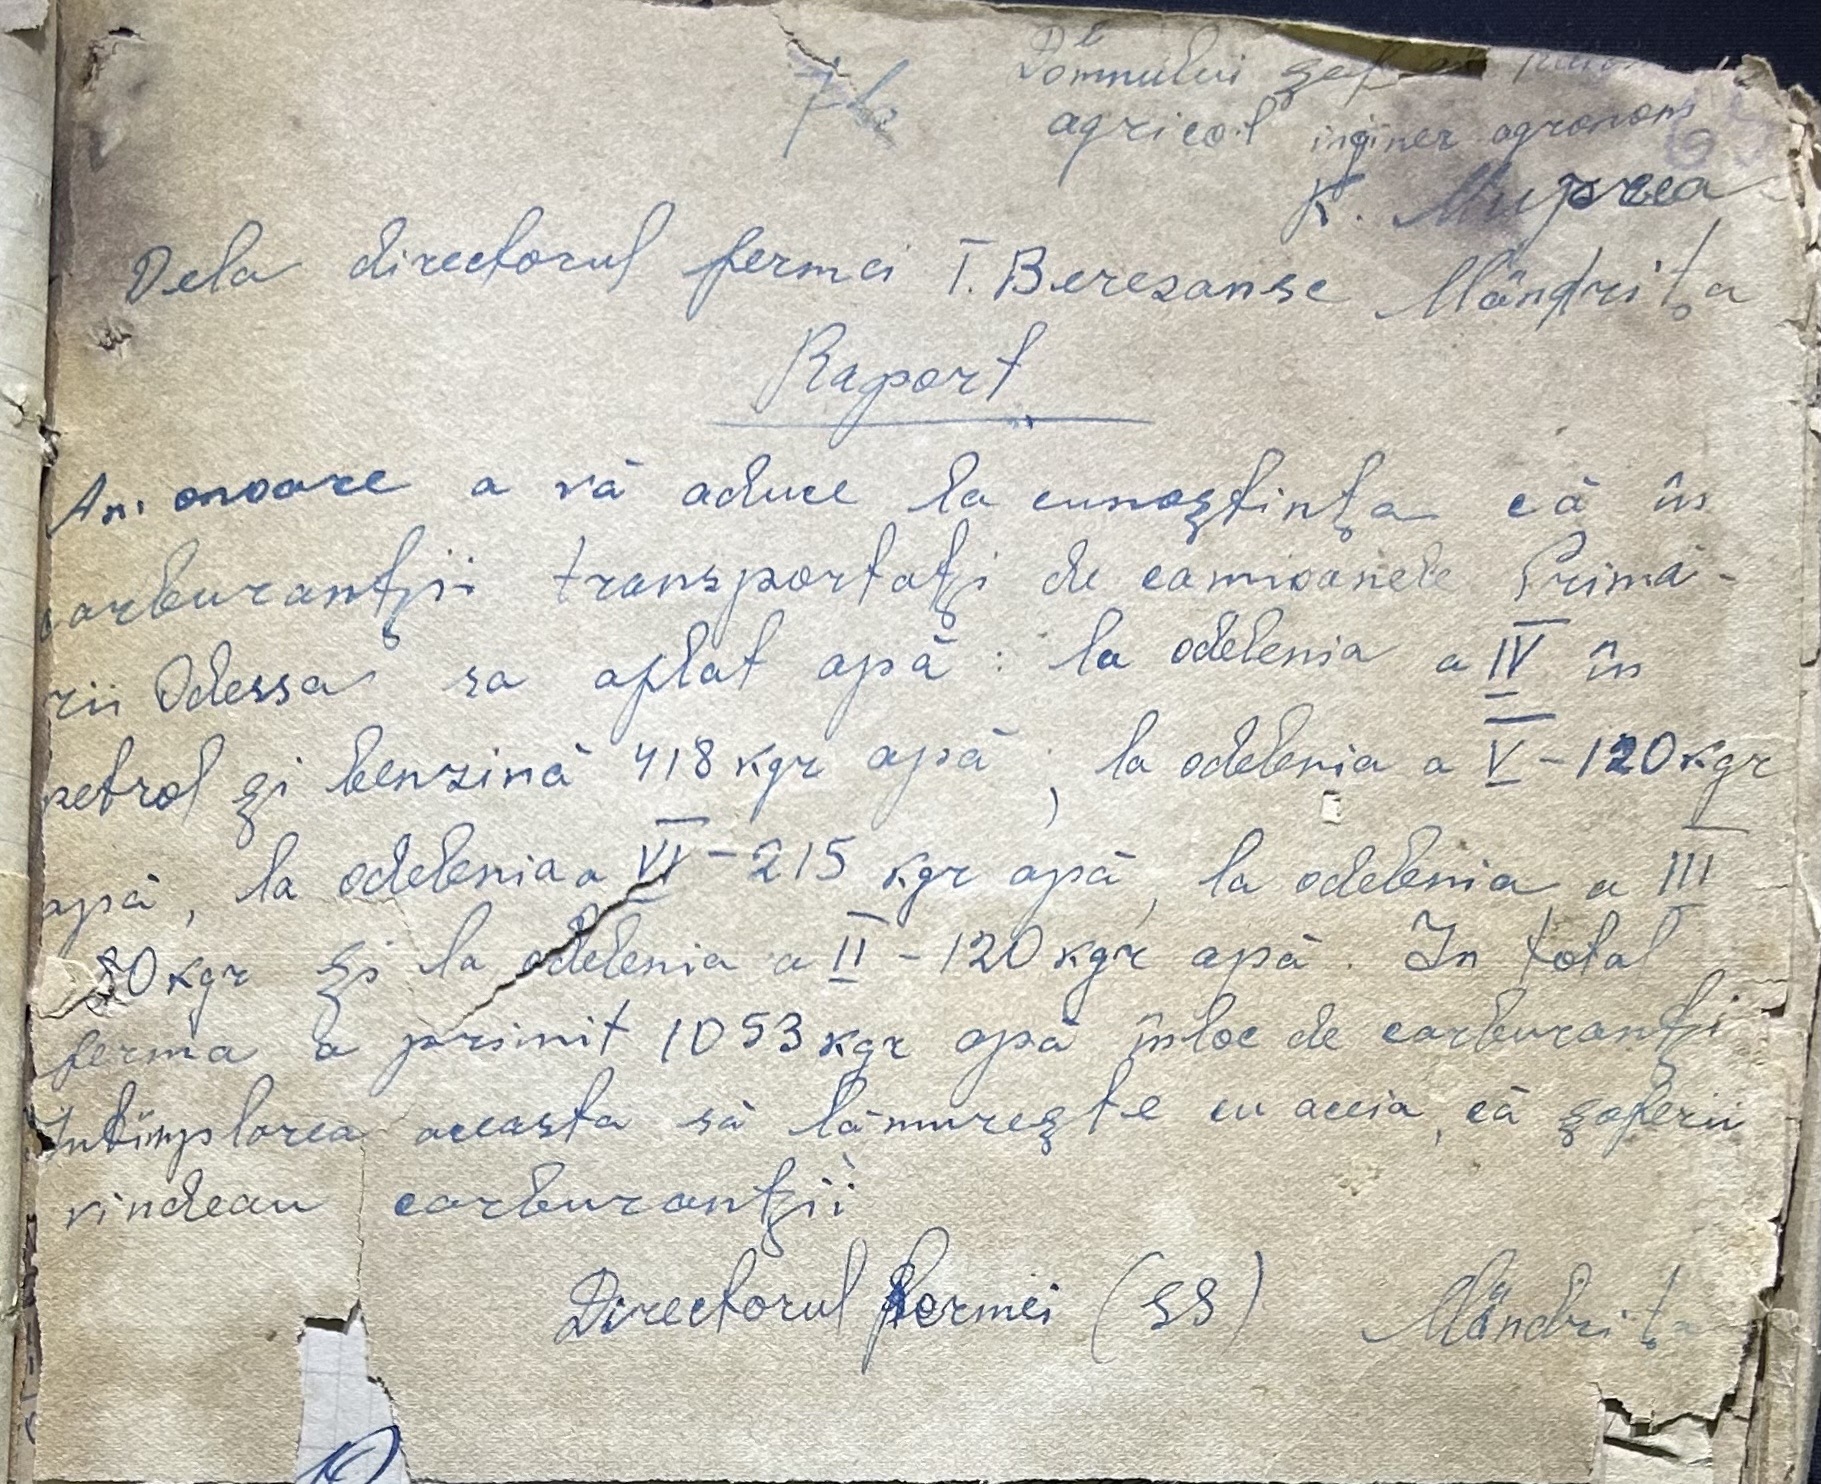 Domnului șef
agricol inginer agronom
K.
Dela directorul fermei T. Berezansc Mândrița
Raport
Am onoare a vă aduce la cunoștința că în
carburanții transportați de camioanele Primă-
rii Odessa sa aflat apă: la odelenia a IV în
petrol și benzină 418 kgr apă, la odelenia a V - 120 kgr
apă, la odelenia a VI - 215 kgr apă, la odelenia a III
80 kgr și la odelenia a II - 120 kgr apă. In total
ferma a primit 1053 kgr apă înloc de carburanți
Intîmplarea aceasta să lămurește cu aceia, că șoferii
vindeau carburanții
Directorul fermei (SS) Mândrița